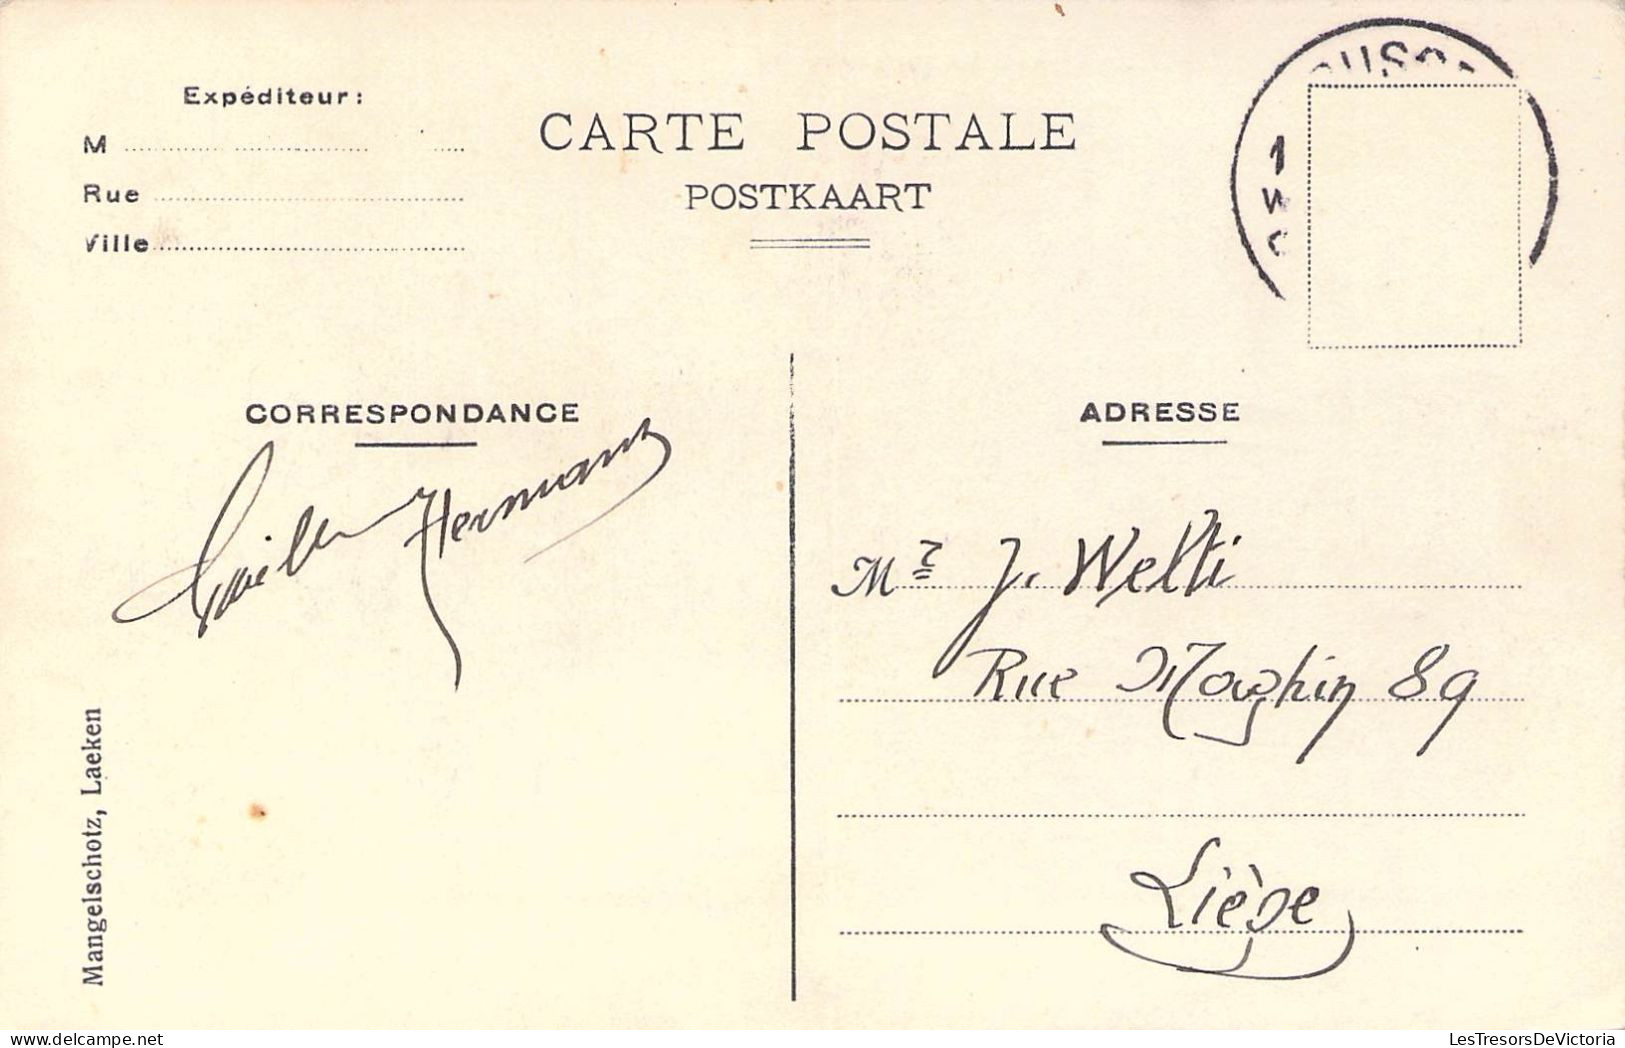 Expéditeur :
M
Rue
Ville
CARTE POSTALE
POSTKAART
CORRESPONDANCE
Hermans
Mangelschotz, Laeken
ADRESSE
Mr J. Welti
Rue Maghin 89
Liège
LesTresorsDeVictoria